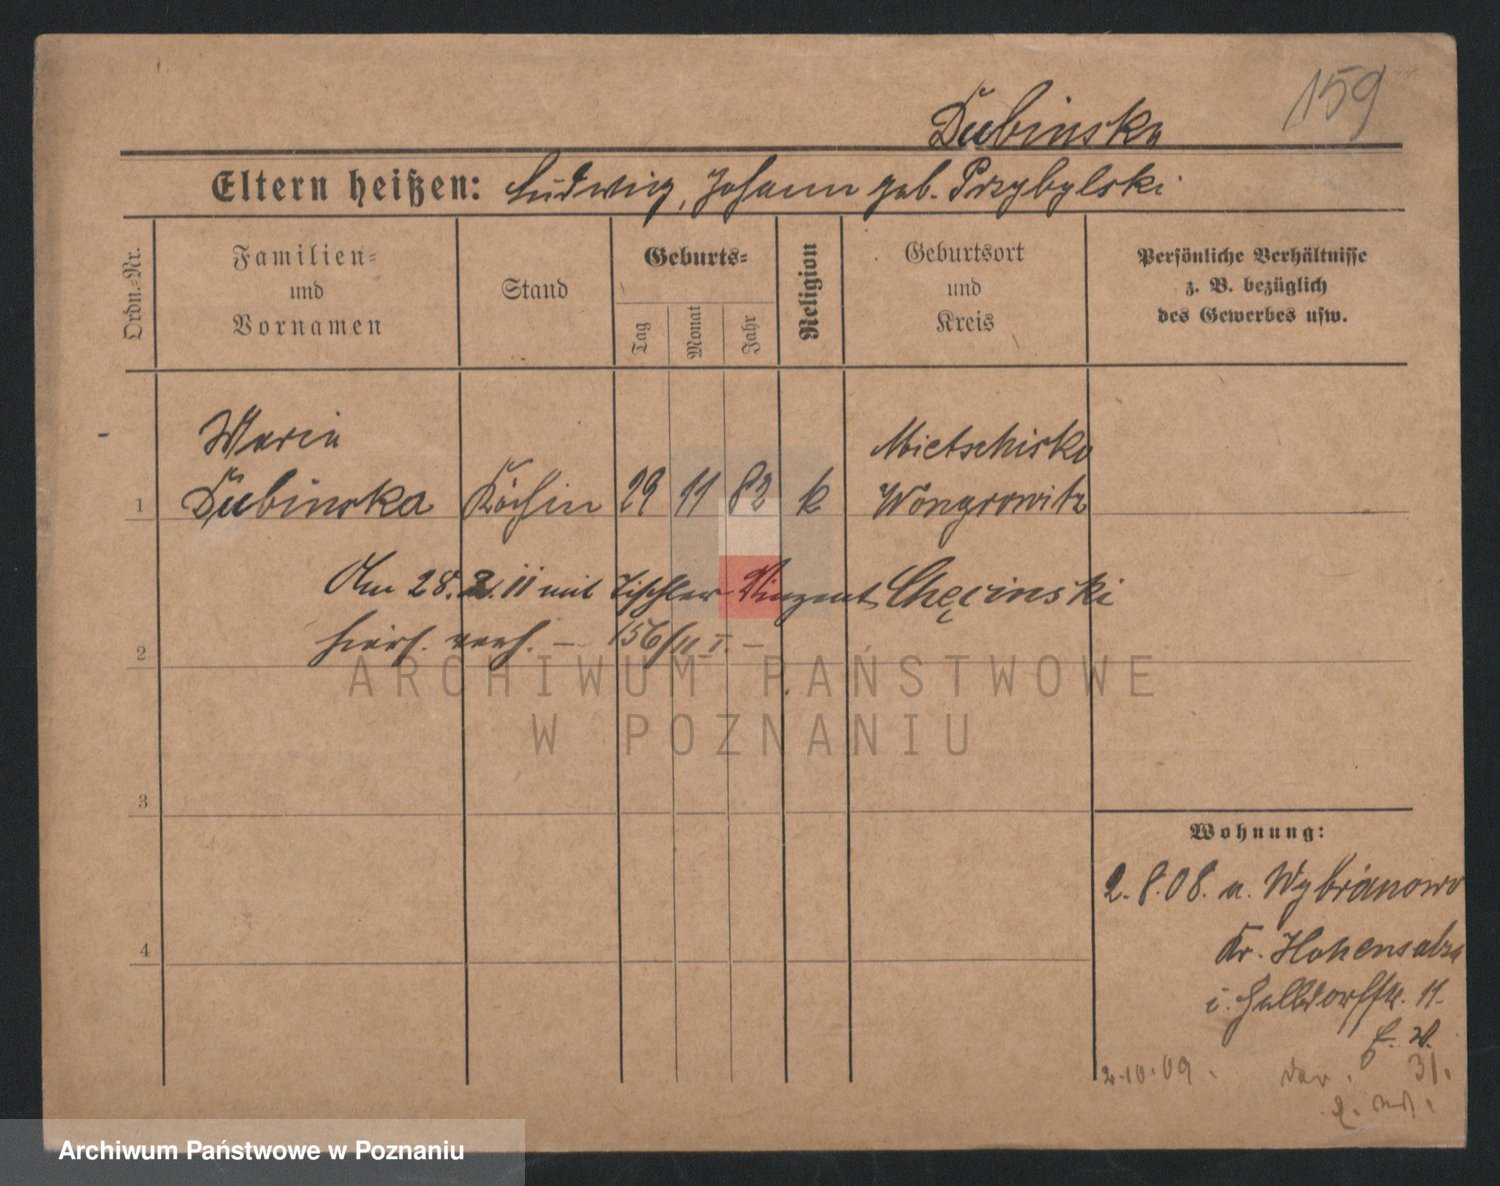 159
Dubinska
Eltern heißen: Ludwig, Johann geb. Przybylski
Ordn.-Nr.
Familien-
und
Vornamen
Stand
Geburts-
Tag
Monat
Jahr
Religion
Geburtsort
und
Kreis
Persönliche Verhältnisse
z. B. bezüglich
des Gewerbes usw.
Maria
Mietschisko
1 Dubinska Köchin 29 11 82 k Wongrowitz
Am 28.2.11 mit Tischler Vinzent Chęcinski
2 hiers. verh. — 156/11 I. —
ARCHIWUM PAŃSTWOWE
W POZNANIU
3
4
Wohnung:
2.8.08. a. Wybranowo
Kr. Hohensalza
i. Halbdorfstr. 11.
2.10.09. 31.
Archiwum Państwowe w Poznaniu